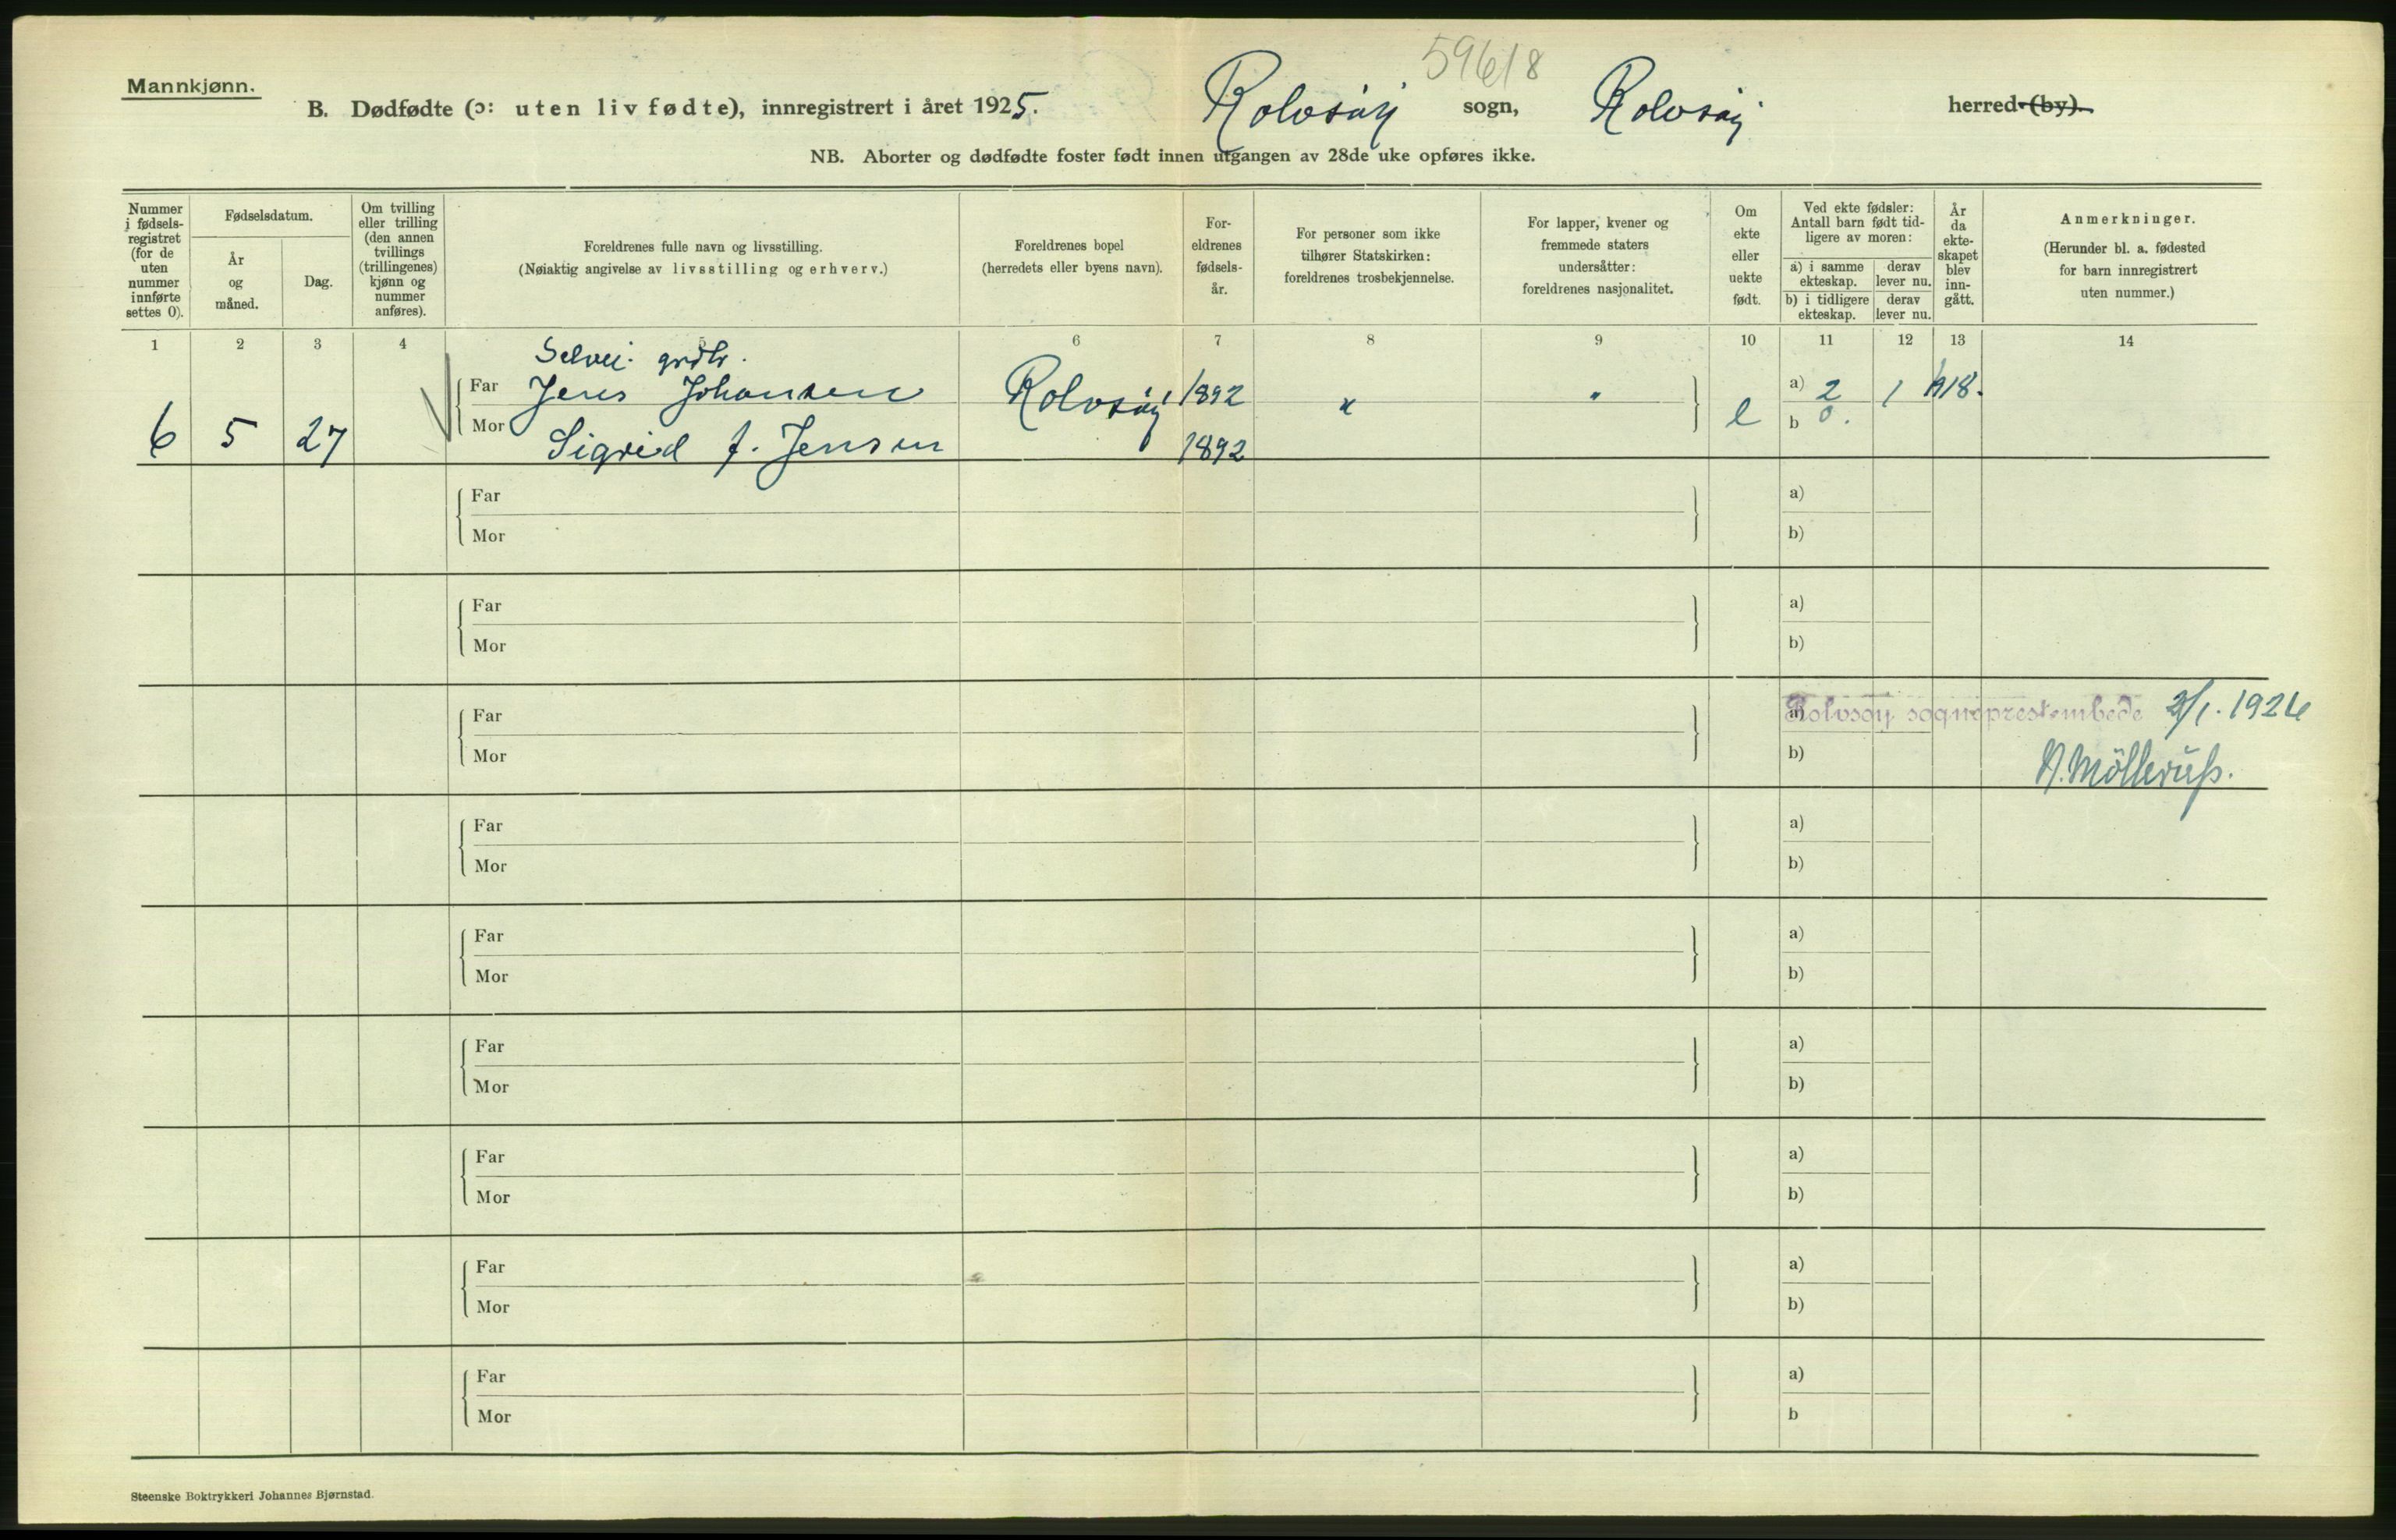 59618
Mannkjønn.
B. Dødfødte (ɔ: uten liv fødte), innregistrert i året 1925. Rolvsøy sogn, Rolvsøy herred (by).
NB. Aborter og dødfødte foster født innen utgangen av 28de uke opføres ikke.
Nummer i fødsels-registret (for de uten nummer innførte settes 0).
Fødselsdatum.
År og måned.
Dag.
Om tvilling eller trilling (den annen tvillings (trillingenes) kjønn og nummer anføres).
Foreldrenes fulle navn og livsstilling.
(Nøiaktig angivelse av livsstilling og erhverv.)
Foreldrenes bopel
(herredets eller byens navn).
For-eldrenes fødsels-år.
For personer som ikke tilhører Statskirken: foreldrenes trosbekjennelse.
For lapper, kvener og fremmede staters undersåtter: foreldrenes nasjonalitet.
Om ekte eller uekte født.
Ved ekte fødsler: Antall barn født tid-ligere av moren:
a) i samme ekteskap.
derav lever nu.
b) i tidligere ekteskap.
derav lever nu.
År da ekte-skapet blev inn-gått.
Anmerkninger.
(Herunder bl. a. fødested for barn innregistrert uten nummer.)
1 2 3 4 5 6 7 8 9 10 11 12 13 14
Selvei. grdbr.
Far Jens Johansen Rolvsøy 1892 " " a) 2 1 1918.
6 5 27 Mor Sigrid J. Jensen 1892 e b 0.
Far a)
Mor b)
Far a)
Mor b)
Far a) Rolvsøy sogneprestembede 2/1. 1926
Mor b)
Far a)
Mor b)
Far a)
Mor b)
Far a)
Mor b)
Far a)
Mor b)
Far a)
Mor b)
Far a)
Mor b
Steenske Boktrykkeri Johannes Bjørnstad.